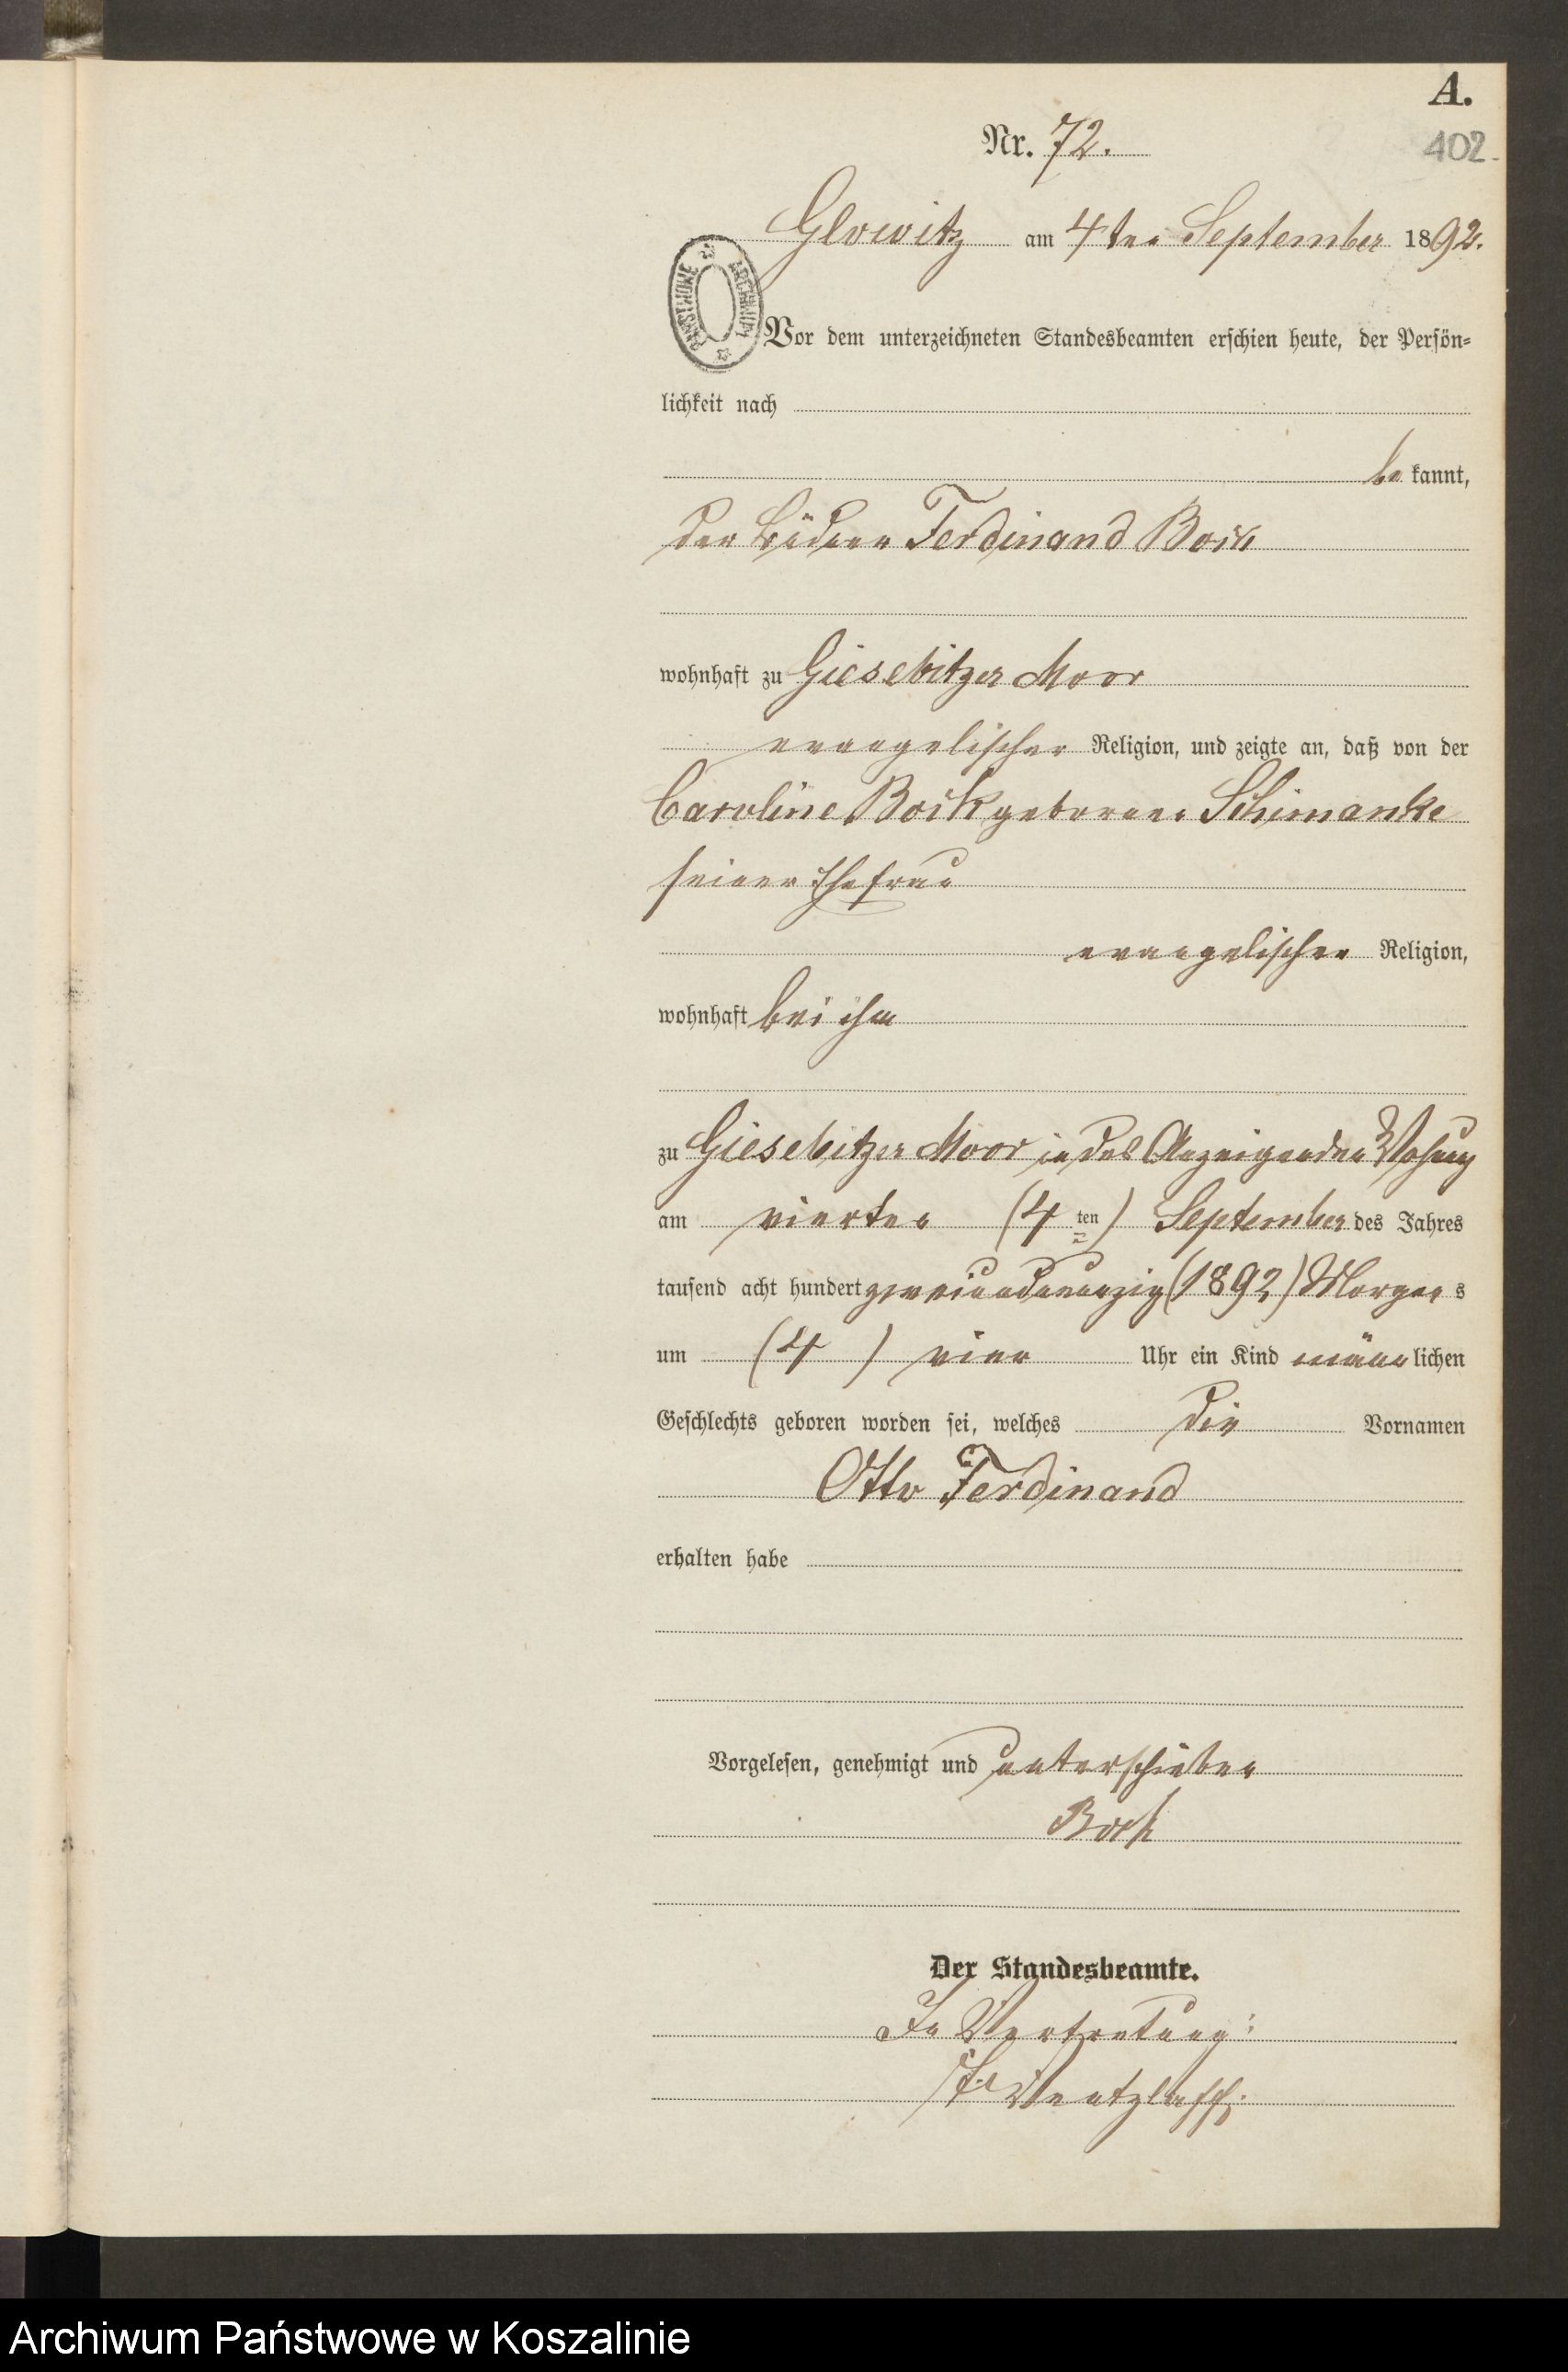 A.
Nr. 72.
402.
Glowitz am 4ten September 1892.
PAŃSTWOWE ARCHIWUM
Vor dem unterzeichneten Standesbeamten erschien heute, der Persön-
lichkeit nach
be kannt,
der Büdner Ferdinand Bock
wohnhaft zu Giesebitzer Moor
evangelischer Religion, und zeigte an, daß von der
Caroline Bock geborenen Schimanke
seiner Ehefrau
evangelischer Religion,
wohnhaft bei ihm
zu Giesebitzer Moor in des Anzeigenden Wohnung
am vierten (4 ten) September des Jahres
tausend acht hundert zweiundneunzig (1892) Morgen s
um (4) vier Uhr ein Kind männ lichen
Geschlechts geboren worden sei, welches die Vornamen
Otto Ferdinand
erhalten habe
Vorgelesen, genehmigt und unterschieben
Bock
Der Standesbeamte.
In Vertretung:
Wentzlaff.
Archiwum Państwowe w Koszalinie